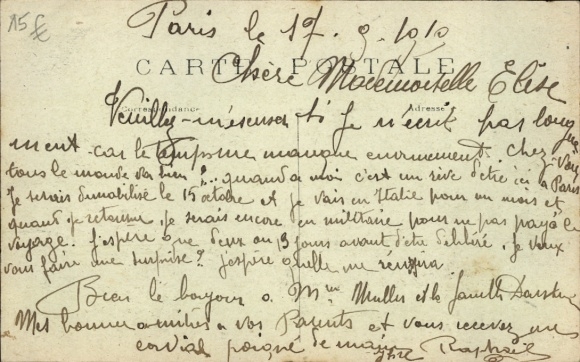 15€
Paris le 17. 9. 1919
CARTE POSTALE
Chère Mademoiselle Elise
Correspondance Adresse
Veuillez m'éscuser si Je n'écrit pas longue
ment car le temps me manque enormement. chez-Vous
tous le monde va bien? ... quand a moi c'est un rêve d'etre ici a Paris
Je serais dimobilisé le 15 octobre et je vais en Italie pour un mois et
quand je retourne je serais encore en militaire pour ne pas payé le
voyage. J'espère que deux ou 3 jours avant d'etre deliberé. Je veux
vous faire une surprise? J'espère qu'elle me réusira
Bien le bonjour a Mme Muller et la famille
Mes bonnes amitiés a vos Parents et vous recevez une
cordial poigné de main Raphael